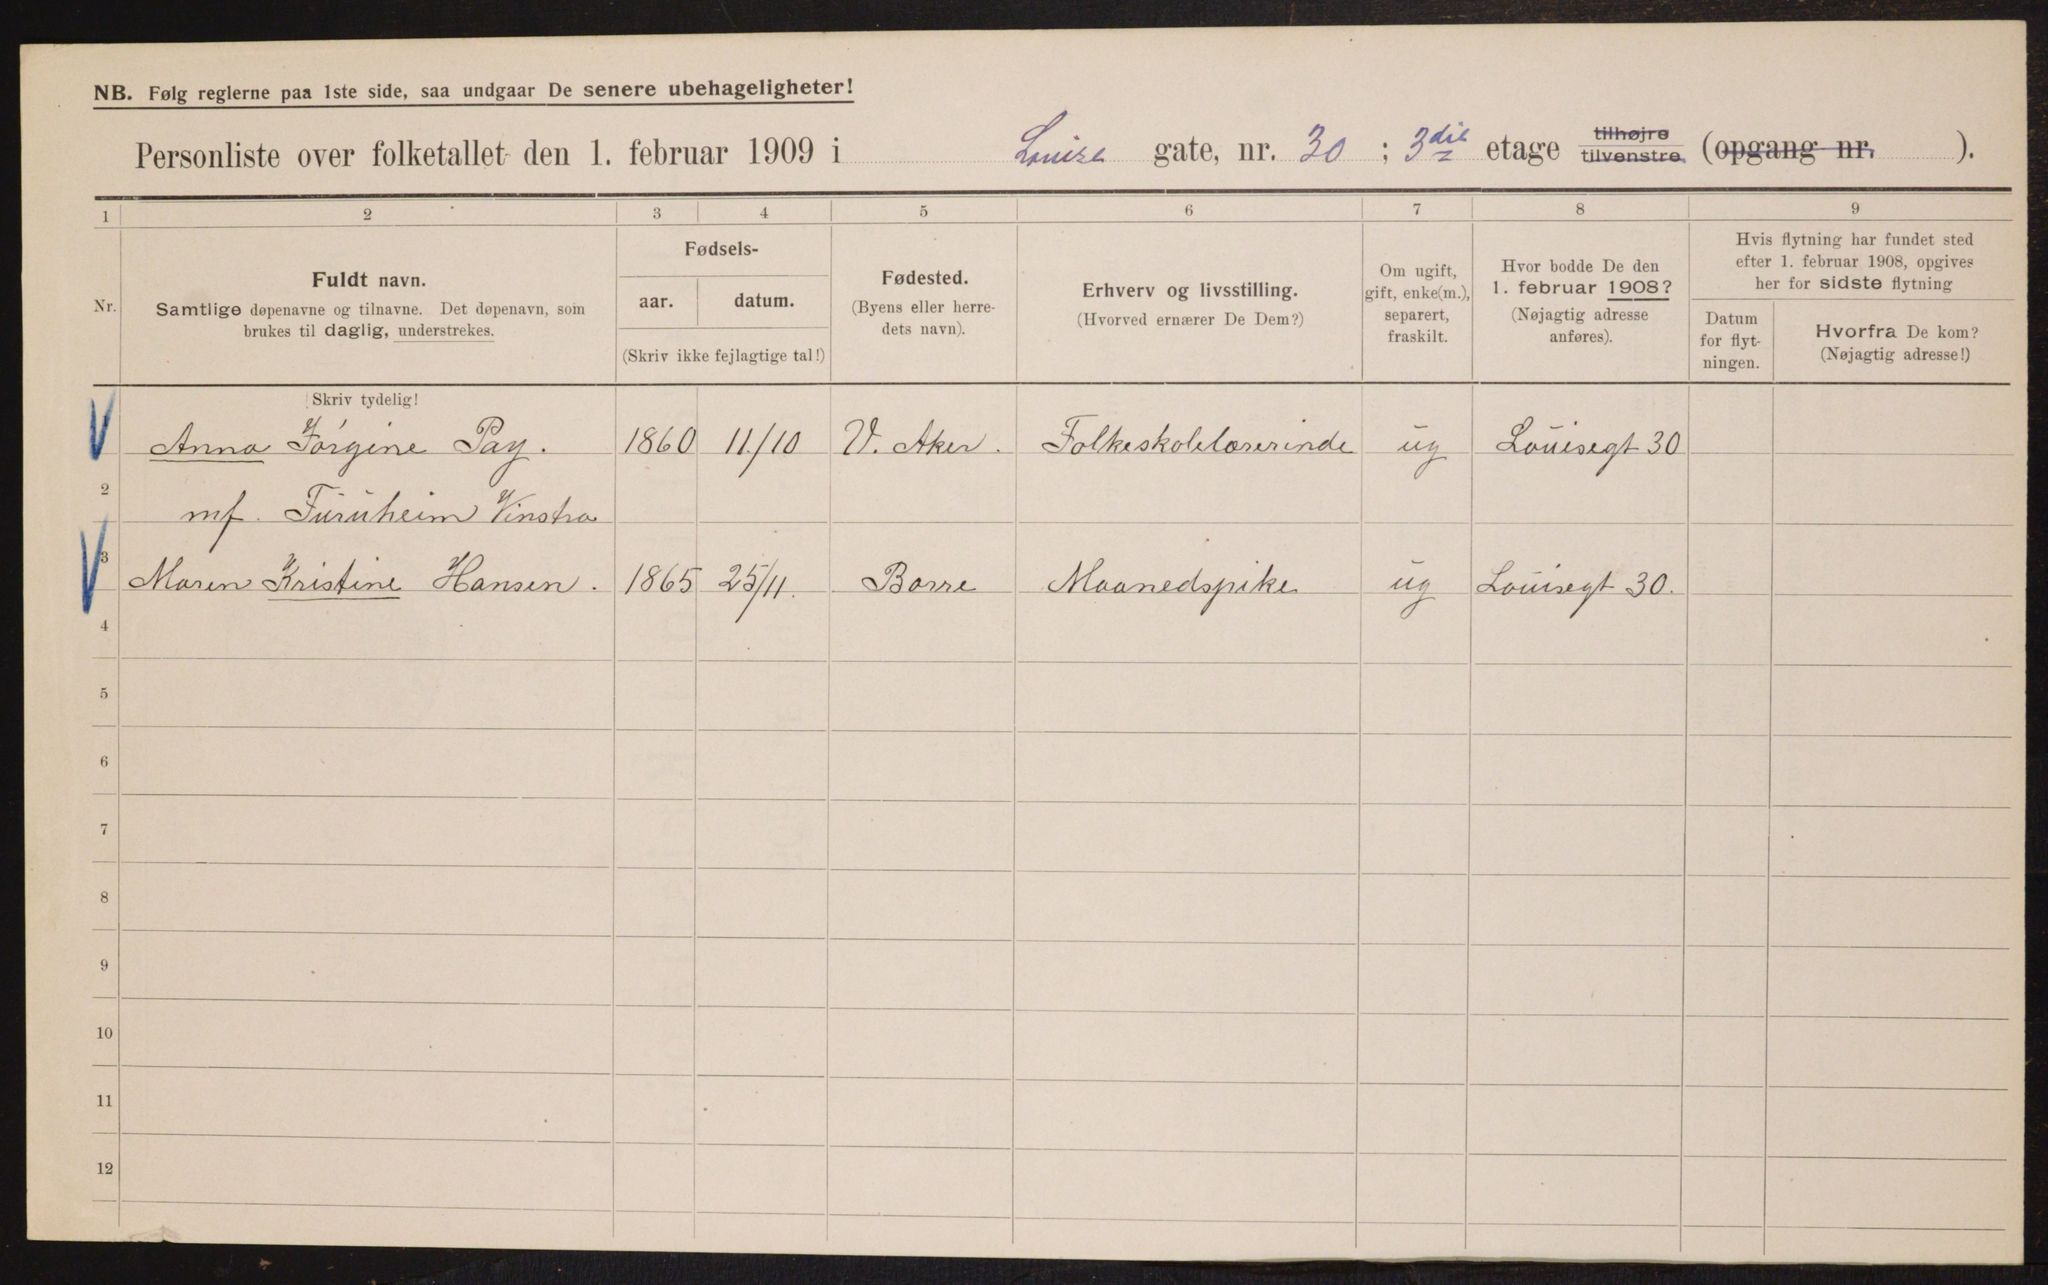 NB. Følg reglerne paa 1ste side, saa undgaar De senere ubehageligheter!
Personliste over folketallet den 1. februar 1909 i Louise gate, nr. 30 ; 3die etage tilhøjre tilvenstre (opgang nr. ).
1 2 3 4 5 6 7 8 9
Nr.
Fuldt navn.
Samtlige døpenavne og tilnavne. Det døpenavn, som
brukes til daglig, understrekes.
Fødsels-
aar. datum.
(Skriv ikke fejlagtige tal!)
Fødested.
(Byens eller herre-
dets navn).
Erhverv og livsstilling.
(Hvorved ernærer De Dem?)
Om ugift,
gift, enke(m.),
separert,
fraskilt.
Hvor bodde De den
1. februar 1908?
(Nøjagtig adresse
anføres).
Hvis flytning har fundet sted
efter 1. februar 1908, opgives
her for sidste flytning
Datum
for flyt-
ningen.
Hvorfra De kom?
(Nøjagtig adresse!)
Skriv tydelig!
Anna Jörgine Pay. 1860 11/10 V. Aker. Folkeskolelærerinde ug Louisegt 30
2
mf. Furuheim Vinstra
3 Maren Kristine Hansen. 1865 25/11. Borre Maanedspike ug Louisegt 30.
4
5
6
7
8
9
10
11
12